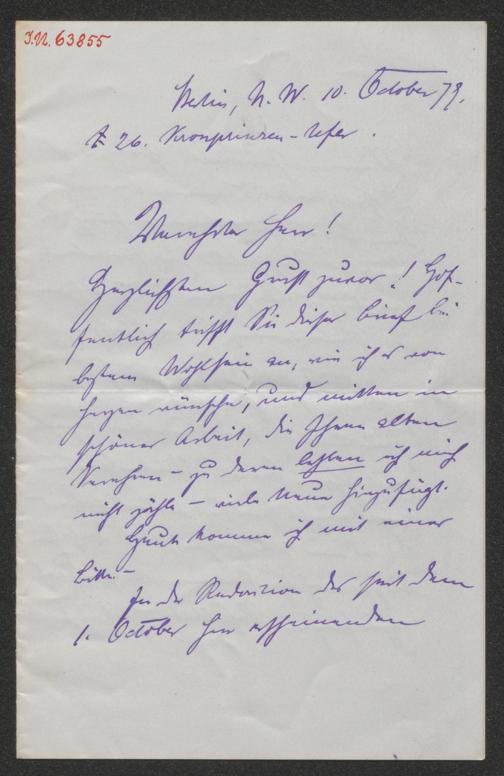 J.N. 63855
Berlin, N. W. 10. October 79.
26. Kronprinzen-Ufer.
Verehrter Herr!
Herzlichsten Gruß zuvor! Hof-
fentlich trifft Sie dieser Brief bei
bestem Wohlsein an, wie ich es von
Herzen wünsche, und mitten in
schöner Arbeit, die Ihren alten
Verehrern – zu deren letzten ich mich
nicht zähle – viele Neue hinzufügt.
Heute komme ich mit einer
Bitte. –
In der Redaction der seit dem
1. October hier erscheinenden